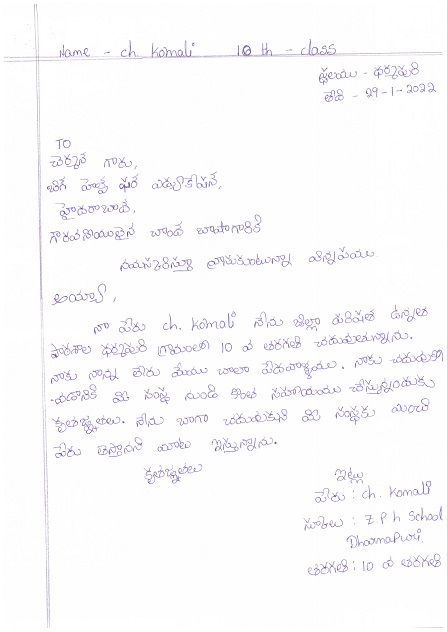 Name - ch. Komali 10 th - class
స్థలము - ధర్మపురి
తేది - 29-1-2022
TO
చైర్మన్ గారు,
బిగ్ హెల్ప్ ఫర్ ఎడ్యుకేషన్,
హైదరాబాద్,
గౌరవనీయులైన చాంద్ బాషాగారికి
నమస్కరిస్తూ వ్రాసుకుంటున్న విన్నపము.
అయ్యా,
నా పేరు ch. Komali నేను జిల్లా పరిషత్ ఉన్నత
పాఠశాల ధర్మపురి గ్రామంలో 10 వ తరగతి చదువుతున్నాను.
నాకు నాన్న లేరు మేము చాలా పేదవాళ్ళము. నాకు చదువుకో
-వడానికి మీ సంస్థ నుండి కొంత సహాయము చేస్తున్నందుకు
కృతజ్ఞతలు. నేను బాగా చదువుకుని మీ సంస్థకు మంచి
పేరు తెస్తానని మాట ఇస్తున్నాను.
కృతజ్ఞతలు
ఇట్లు
పేరు : ch. Komali
స్కూలు : Z P h School
Dharmapuri.
తరగతి : 10 వ తరగతి